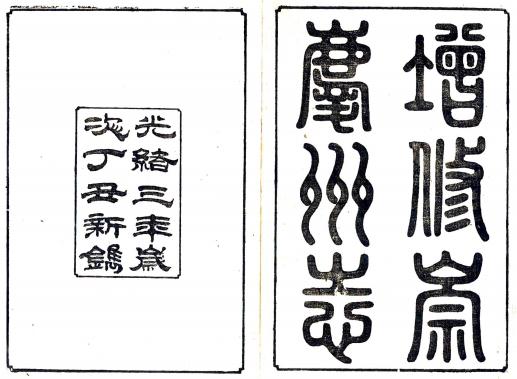 增修崇
慶州志
光緒三年歲
次丁丑新鐫